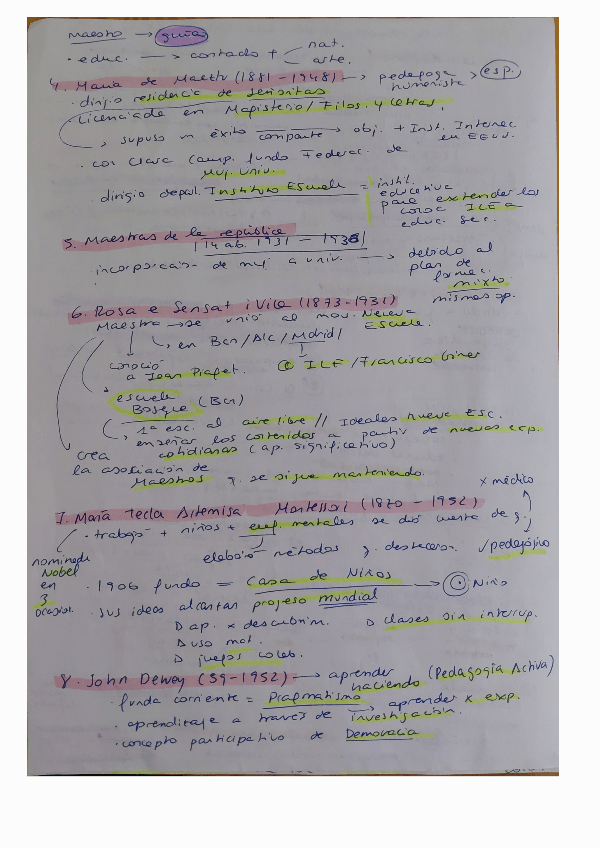 maestro → guía
· educ. → contacto + nat.
arte.
4. María de Maeztu (1881-1948) → pedagoga humanista → esp.
· dirigio residencia de señoritas
· Licenciada en Magisterio/ Filos. y Letras.
→ supuso un éxito comparte → obj. + Inst. Internac. en EEUU.
· con Clara Camp. fundo Federac. de
Muj. Univ.
· dirigio depar. Instituto Escuela = instit.
educativa
para extender los
conoc ILE a
educ. sec.
5. Maestras de la república
(14 ab. 1931 - 1936)
· incorporación de muj. a univ. → debido al
plan de
formac.
mixto
mismas op.
6. Rosa e Sensat i Vila (1873-1931)
Maestra → se unió al mov. Nueva
Escuela.
→ en Bcn/Alc/Madrid
conoció
a Jean Piaget.
ILE/Francisco Giner
escuela
Bosque (Bcn)
1ª esc. al aire libre // Ideales nueva Esc.
enseñar los contenidos a partir de nuevas exp.
cotidianas (ap. significativo)
crea
la asociación de
Maestros q. se sigue manteniendo.
7. María Tecla Artemisa Montessori (1870 - 1952)
x médico
· trabajó + niños + enf. mentales se dió cuenta de q.
✓ pedagógico
elaboró métodos q. destacaron.
nominada
Nobel
en
3
ocasion.
· 1906 fundo = Casa de Niños → Niño
· sus ideas alcanzan progreso mundial
▷ ap. x descubrim. ▷ clases sin interrup.
▷ uso mat.
▷ juegos colab.
8. John Dewey (59-1952) → aprender
haciendo (Pedagogía Activa)
· funda corriente = Pragmatismo → aprender x exp.
· aprendizaje a través de investigación.
· concepto participativo de Democracia